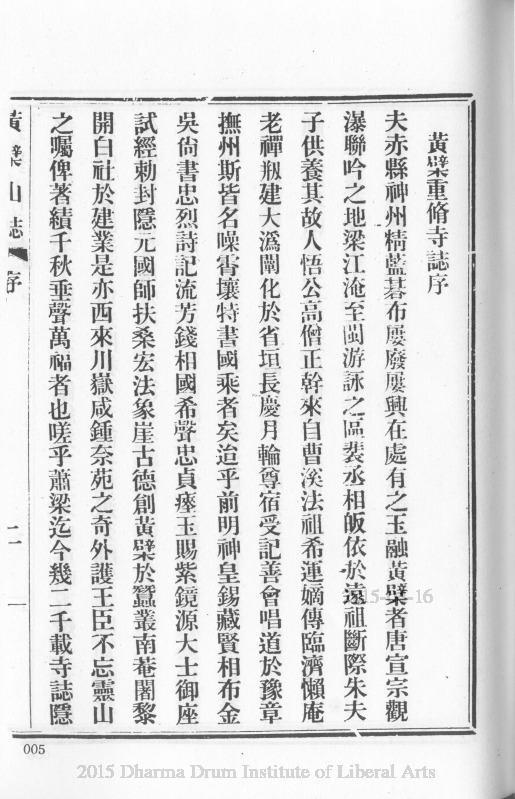 黃檗重脩寺誌序
夫赤縣神州精藍碁布屢廢屢興在處有之玉融黃檗者唐宣宗觀
瀑聯吟之地梁江淹至閩游詠之區裴丞相皈依於遠祖斷際朱夫
子供養其故人悟公高僧正幹來自曹溪法祖希運嫡傳臨濟懶庵
老禪剏建大溈闡化於省垣長慶月輪尊宿受記善會唱道於豫章
撫州斯皆名噪霄壤特書國乘者矣迨乎前明神皇錫藏賢相布金
吳尙書忠烈詩記流芳錢相國希聲忠貞瘞玉賜紫鏡源大士御座
試經勅封隱元國師扶桑宏法象崖古德創黃檗於蠶叢南菴闍黎
開白社於建業是亦西來川嶽咸鍾奈苑之奇外護王臣不忘靈山
之囑俾著績千秋垂聲萬福者也嗟乎蕭梁迄今幾二千載寺誌隱
黃檗山誌 序 二
005
2015 Dharma Drum Institute of Liberal Arts